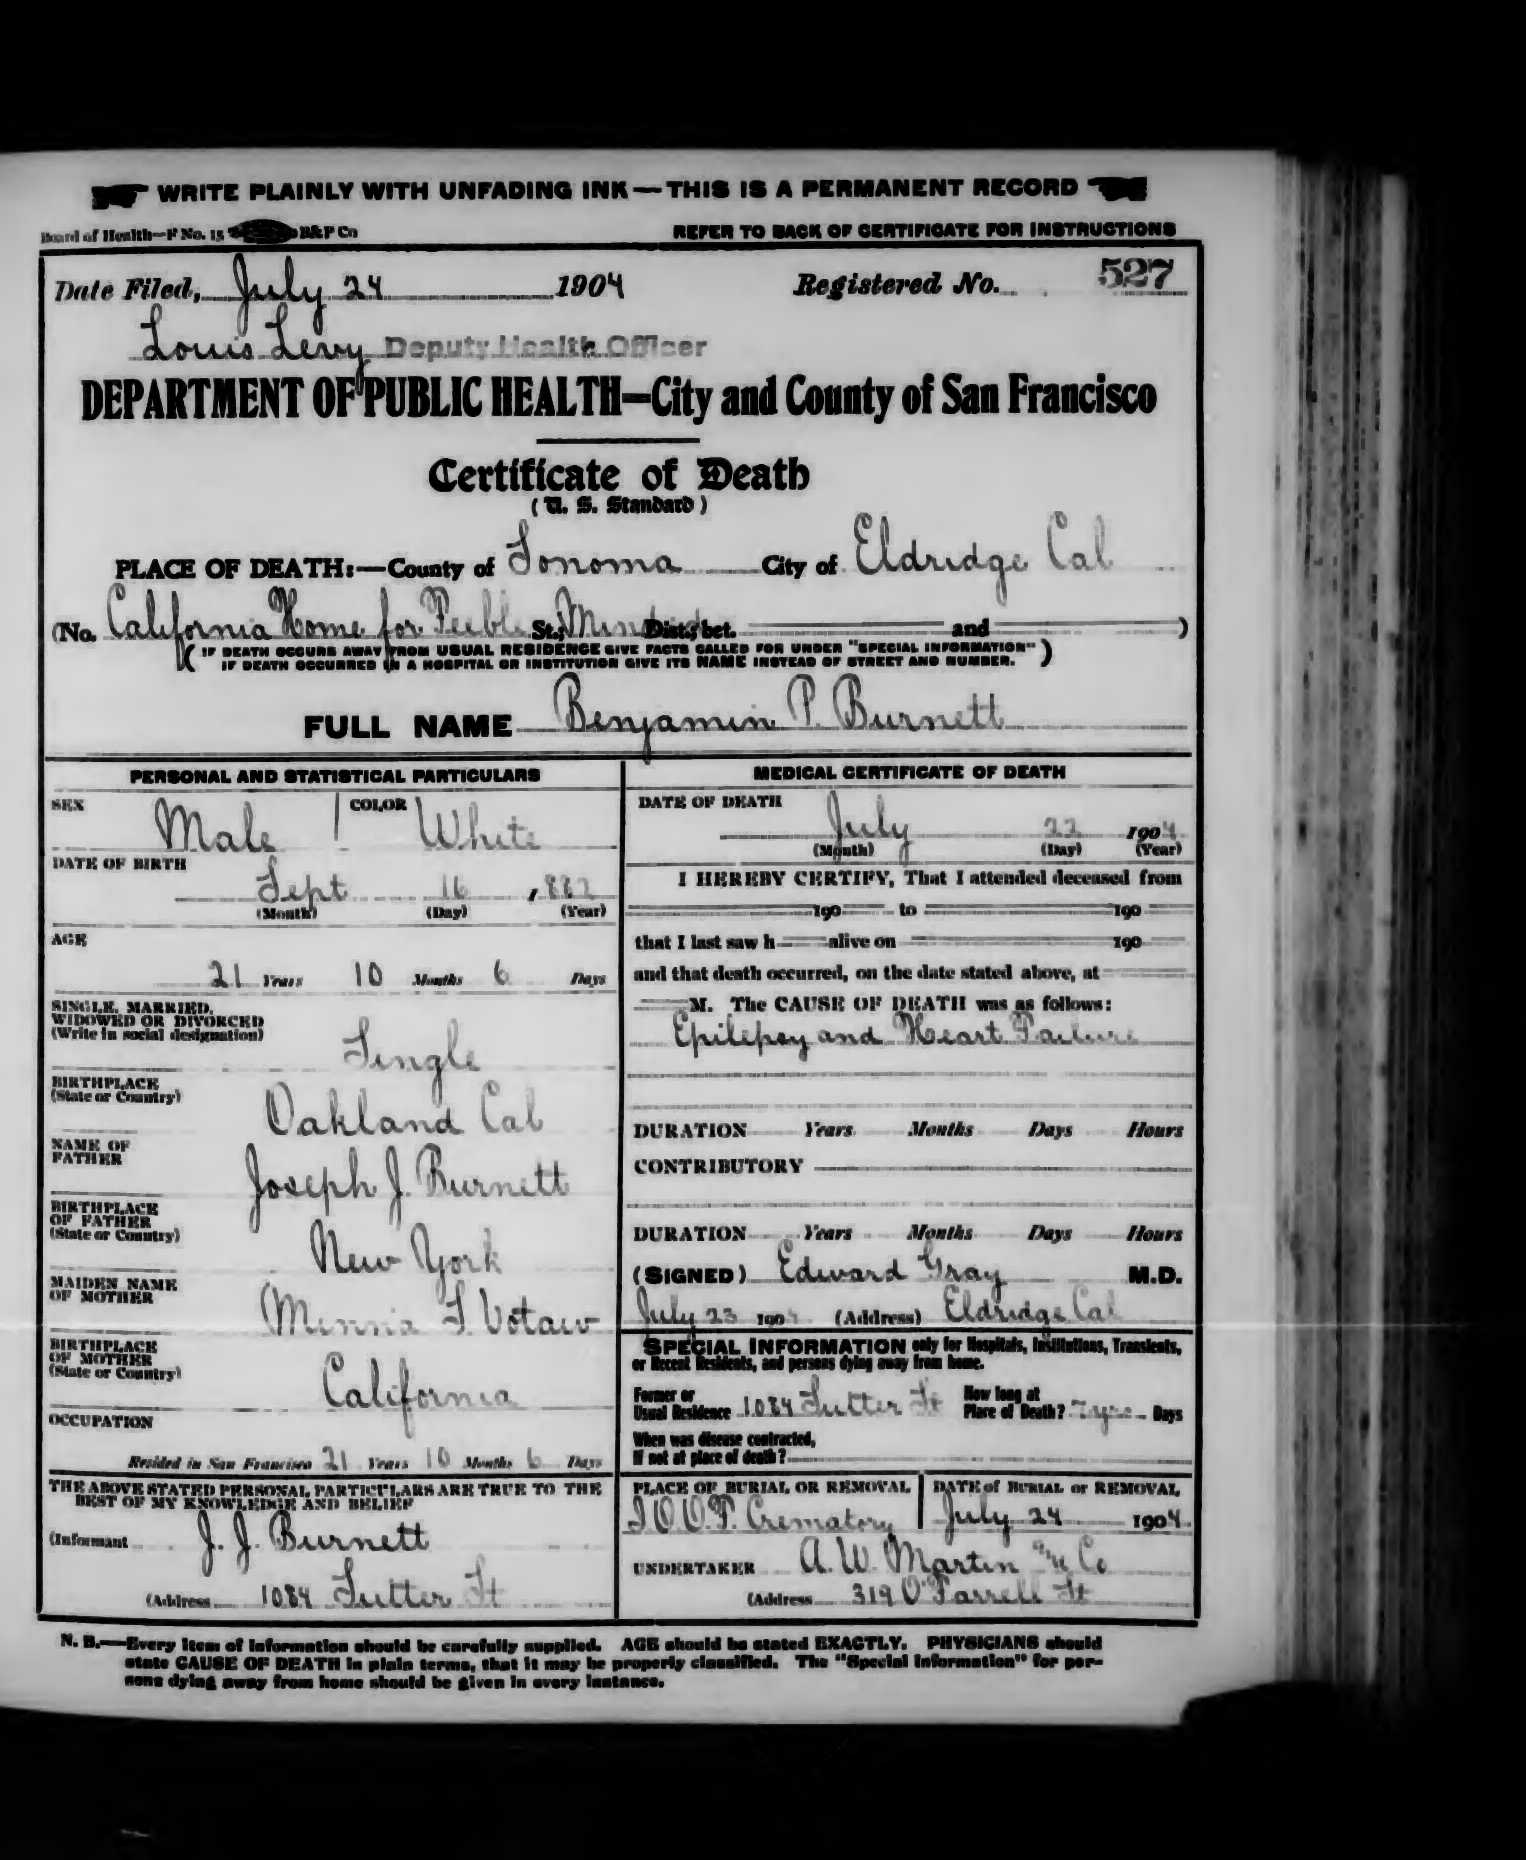 WRITE PLAINLY WITH UNFADING INK—THIS IS A PERMANENT RECORD
Board of Health—F No. 15 B&P Co REFER TO BACK OF CERTIFICATE FOR INSTRUCTIONS
Date Filed, July 24 1904 Registered No. 527
Louis Levy Deputy Health Officer
DEPARTMENT OF PUBLIC HEALTH—City and County of San Francisco
Certificate of Death
(U. S. Standard)
PLACE OF DEATH:—County of Sonoma City of Eldridge Cal
(No. California Home for Feeble St.; Minded Dist.; bet. and )
( IF DEATH OCCURS AWAY FROM USUAL RESIDENCE GIVE FACTS CALLED FOR UNDER "SPECIAL INFORMATION" )
IF DEATH OCCURRED IN A HOSPITAL OR INSTITUTION GIVE ITS NAME INSTEAD OF STREET AND NUMBER.
FULL NAME Benjamin P. Burnett
PERSONAL AND STATISTICAL PARTICULARS
SEX Male COLOR White
DATE OF BIRTH
Sept 16 , 882
(Month) (Day) (Year)
AGE
21 Years 10 Months 6 Days
SINGLE, MARRIED,
WIDOWED OR DIVORCED
(Write in social designation)
Single
BIRTHPLACE
(State or Country)
Oakland Cal
NAME OF
FATHER
Joseph J. Burnett
BIRTHPLACE
OF FATHER
(State or Country)
New York
MAIDEN NAME
OF MOTHER
Minnia F. Votaw
BIRTHPLACE
OF MOTHER
(State or Country)
California
OCCUPATION
Resided in San Francisco 21 Years 10 Months 6 Days
THE ABOVE STATED PERSONAL PARTICULARS ARE TRUE TO THE
BEST OF MY KNOWLEDGE AND BELIEF
(Informant J. J. Burnett
(Address 1084 Sutter St
MEDICAL CERTIFICATE OF DEATH
DATE OF DEATH
July 22 1904
(Month) (Day) (Year)
I HEREBY CERTIFY, That I attended deceased from
190 to 190
that I last saw h alive on 190
and that death occurred, on the date stated above, at
M. The CAUSE OF DEATH was as follows:
Epilepsy and Heart Failure
DURATION Years Months Days Hours
CONTRIBUTORY
DURATION Years Months Days Hours
(SIGNED) Edward Gray M.D.
July 23 1904 (Address) Eldridge Cal
SPECIAL INFORMATION only for Hospitals, Institutions, Transients,
or Recent Residents, and persons dying away from home.
Former or
Usual Residence 1084 Sutter St
How long at
Place of Death? 7 yrs Days
When was disease contracted,
If not at place of death?
PLACE OF BURIAL OR REMOVAL
I.O.O.F. Crematory
DATE of BURIAL or REMOVAL
July 24 1904
UNDERTAKER A. W. Martin & Co
(Address 319 O'Farrell St
N. B.—Every item of information should be carefully supplied. AGE should be stated EXACTLY. PHYSICIANS should
state CAUSE OF DEATH in plain terms, that it may be properly classified. The "Special Information" for per-
sons dying away from home should be given in every instance.